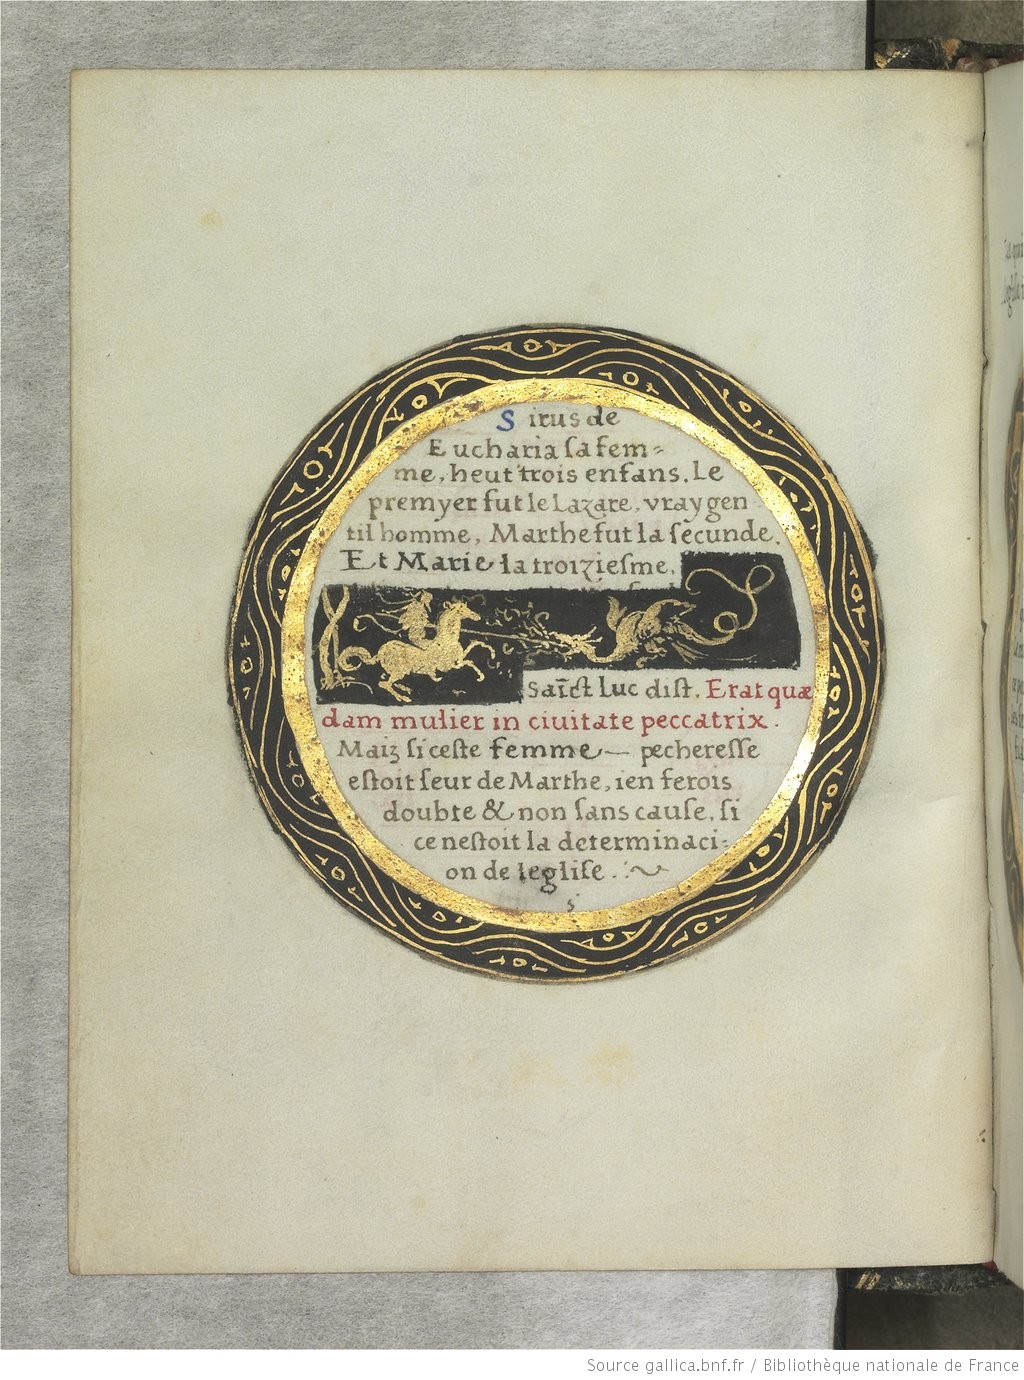 Sirus de
Eucharia sa fem=
me, heut trois enfans. Le
premyer fut le Lazare, vray gen
til homme, Marthe fut la secunde.
Et Marie la troiziesme.
Sainct Luc dist. Erat quæ
dam mulier in ciuitate peccatrix.
Maiz si ceste femme — pecheresse
estoit seur de Marthe, ien ferois
doubte & non sans cause, si
ce nestoit la determinaci=
on de leglise.
Source gallica.bnf.fr / Bibliothèque nationale de France